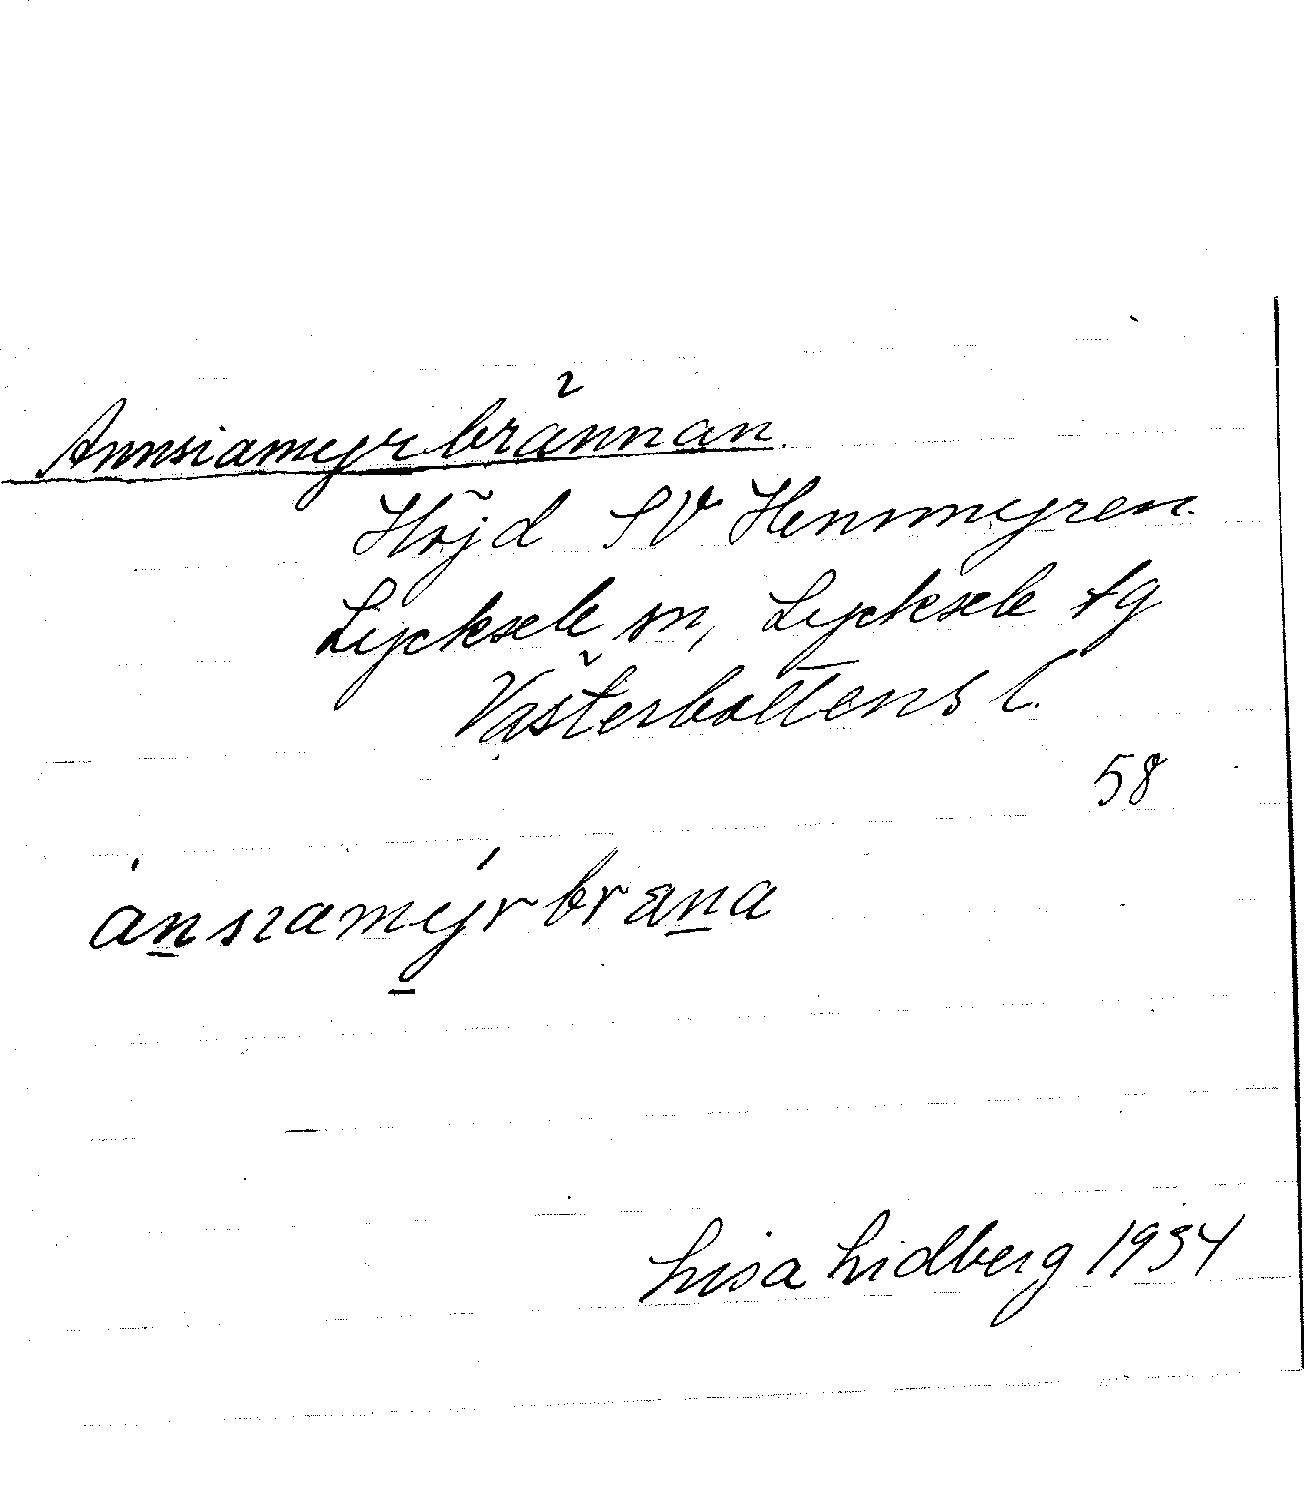 Annsiamyrbrännan
Höjd SV Hemmyren
Lycksele sn, Lycksele tg
Västerbottens l.
58
ánsıamýrbræna
Lisa Lidberg 1934